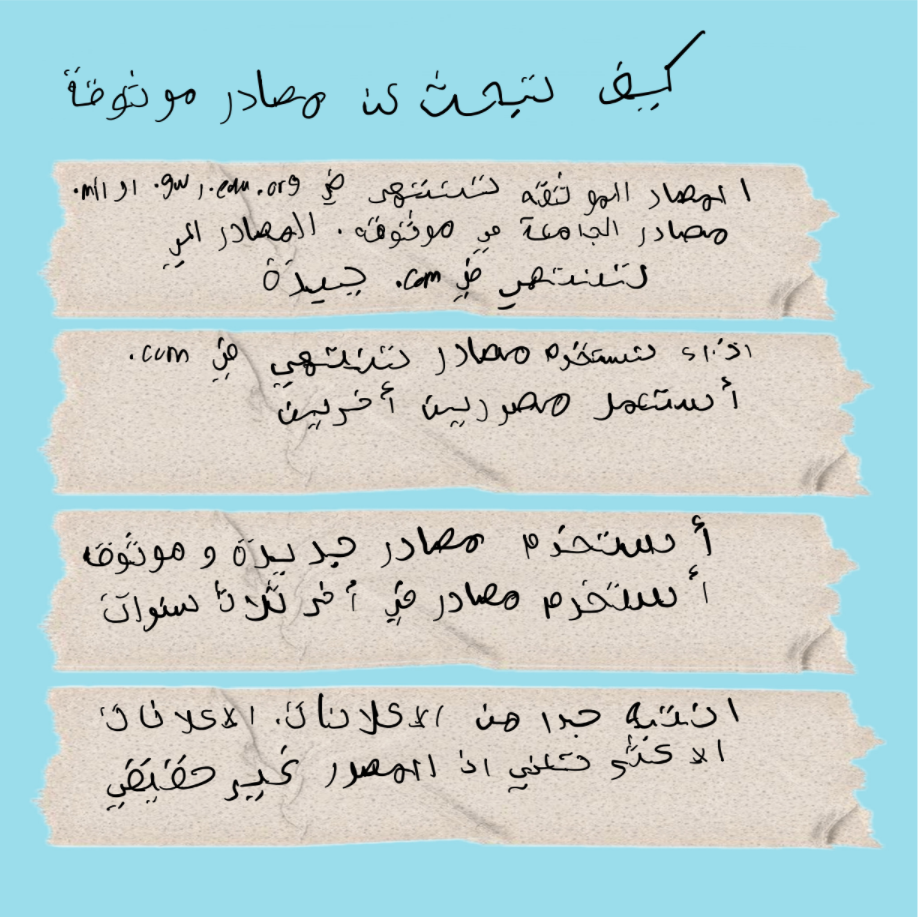 كيف تبحث عن مصادر موثوقة
المصادر الموثقه تنتهي في .org .edu, .gov او .mil
مصادر الجامعة هي موثوقه. المصادر التي
تنتهي في .com جيدة
اذا تستخدم مصادر تنتهي في .com
أستعمل مصدرين أخرين
أستخدم مصادر جديدة و موثوقه
أستخدم مصادر في أخر ثلاث سنوات
انتبه جدا من الاعلانات. الاعلانات
الاكثر تعني ان المصدر غير حقيقي